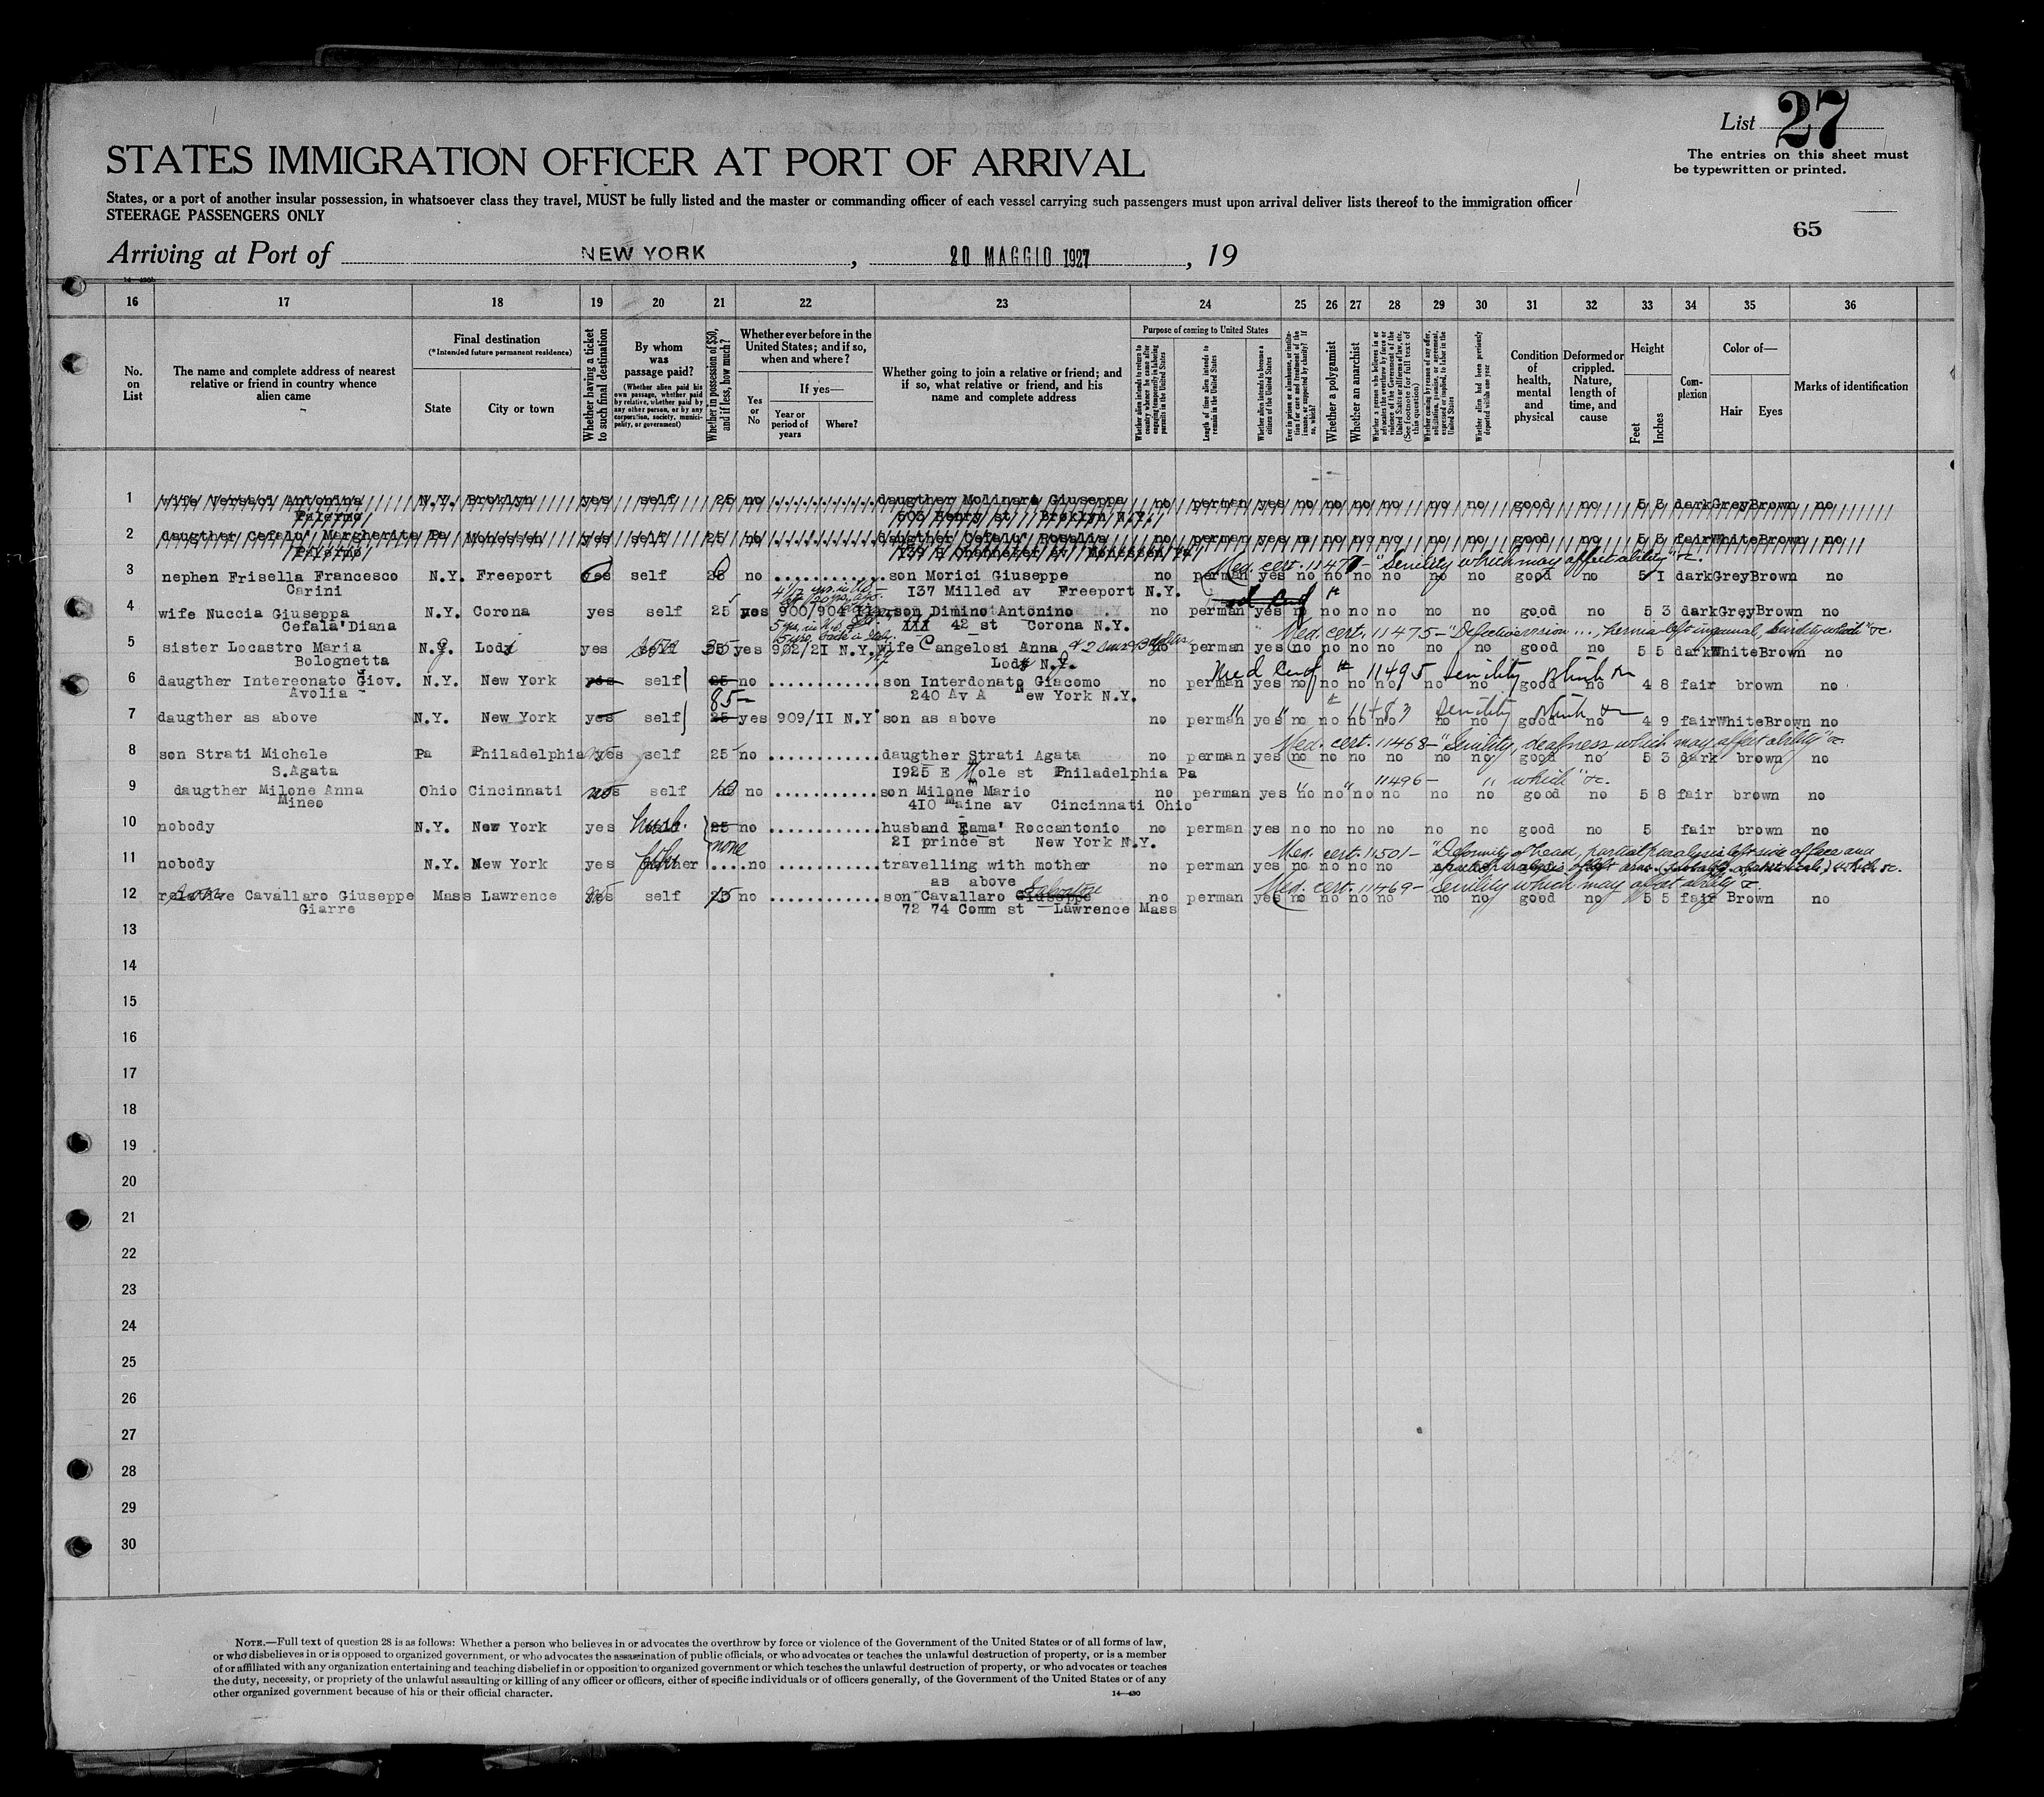 List 27
The entries on this sheet must
be typewritten or printed.
STATES IMMIGRATION OFFICER AT PORT OF ARRIVAL
States, or a port of another insular possession, in whatsoever class they travel, MUST be fully listed and the master or commanding officer of each vessel carrying such passengers must upon arrival deliver lists thereof to the immigration officer
STEERAGE PASSENGERS ONLY
65
Arriving at Port of NEW YORK, 20 MAGGIO 1927, 19
16 17 18 19 20 21 22 23 24 25 26 27 28 29 30 31 32 33 34 35 36
No. on List
The name and complete address of nearest relative or friend in country whence alien came
Final destination
(*Intended future permanent residence)
State
City or town
Whether having a ticket to such final destination
By whom was passage paid?
(Whether alien paid his own passage, whether paid by relative, whether paid by any other person, or by any corporation, society, municipality, or government)
Whether in possession of $50, and if less, how much?
Whether ever before in the United States; and if so, when and where?
Yes or No
If yes—
Year or period of years
Where?
Whether going to join a relative or friend; and if so, what relative or friend, and his name and complete address
Purpose of coming to United States
Whether alien intends to return to country whence he came after engaging temporarily in laboring pursuits in the United States
Length of time alien intends to remain in the United States
Whether alien intends to become a citizen of the United States
Whether a polygamist
Whether an anarchist
Condition of health, mental and physical
Deformed or crippled. Nature, length of time, and cause
Height
Feet
Inches
Complexion
Color of—
Hair
Eyes
Marks of identification
1 wife Versaci Antonina N.Y. Broklyn yes self 25 no daugther Molinari Giuseppa no perman yes no no no no no no good no 5 3 dark Grey Brown no
Palermo 503 Henry st Broklyn N.Y.
2 daugther Cefalu' Margherita Pa Monessen yes self 25 no daugther Cefalu' Rosalia no perman yes no no no no no no good no 5 3 fair White Brown no
Palermo Monessen Pa
Med. cert. 11477 - "Senility which may affect ability" &c.
3 nephen Frisella Francesco N.Y. Freeport yes self 25 no son Morici Giuseppe no perman yes no no no no no no good no 5 1 dark Grey Brown no
Carini 137 Milled av Freeport N.Y.
4 wife Nuccia Giuseppa N.Y. Corona yes self 25 yes 900/904 son Dimino Antonino no perman yes no no no no no no good no 5 3 dark Grey Brown no
Cefala'Diana 42 st Corona N.Y.
Med. cert. 11475 - "Defective vision ... hernia left inguinal, senility which" &c.
5 sister Locastro Maria N.J. Lodi yes self 35 yes 902/21 N.Y. wife Cangelosi Anna no perman yes no no no no no no good no 5 5 dark White Brown no
Bolognetta Lodi N.J.
Med Cert # 11495 Senility which &c
6 daugther Intereonato Giov. N.Y. New York yes self 25 no son Interdonato Giacomo no perman yes no no no no no no good no 4 8 fair brown no
Avolia 85- 240 Av A New York N.Y.
Senility which &c
7 daugther as above N.Y. New York yes self 25 yes 909/II N.Y son as above no perman yes no no no no no no good no 4 9 fair White Brown no
Med. cert. 11468 - "Senility, deafness which may affect ability" &c.
8 son Strati Michele Pa Philadelphia yes self 25 no daugther Strati Agata no perman yes no no no no no no good no 5 3 dark brown no
S.Agata 1925 E Mole st Philadelphia Pa
" " 11496 - " which" &c.
9 daugther Milone Anna Ohio Cincinnati no self 10 no son Milone Mario no perman yes no no no no no no good no 5 8 fair brown no
Mineo 410 Maine av Cincinnati Ohio
10 nobody N.Y. New York yes husb. 25 no husband Fama' Roccantonio no perman yes no no no no no no good no 5 fair brown no
none 21 prince st New York N.Y.
Med. cert. 11501 - "Deformity of head, partial paralysis left side of face and
11 nobody N.Y. New York yes father no travelling with mother no perman yes no no no no
as above
Med. cert. 11469 - Senility which may affect ability &c
12 relative Cavallaro Giuseppe Mass Lawrence no self 15 no son Cavallaro Giuseppe Salvatore no perman yes no no no no no no good no 5 5 fair Brown no
Giarre 72 74 Comm st Lawrence Mass
13
14
15
16
17
18
19
20
21
22
23
24
25
26
27
28
29
30
NOTE.—Full text of question 28 is as follows: Whether a person who believes in or advocates the overthrow by force or violence of the Government of the United States or of all forms of law,
or who disbelieves in or is opposed to organized government, or who advocates the assassination of public officials, or who advocates or teaches the unlawful destruction of property, or is a member
of or affiliated with any organization entertaining and teaching disbelief in or opposition to organized government or which teaches the unlawful destruction of property, or who advocates or teaches
the duty, necessity, or propriety of the unlawful assaulting or killing of any officer or officers, either of specific individuals or of officers generally, of the Government of the United States or of any
other organized government because of his or their official character.
14—430